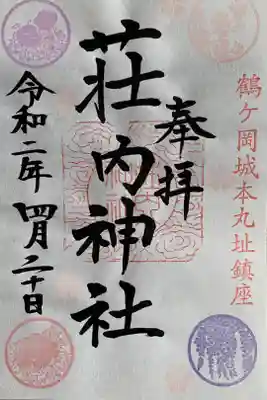 鶴ヶ岡城本丸址鎮座
奉拝
荘内神社
令和二年四月二十日